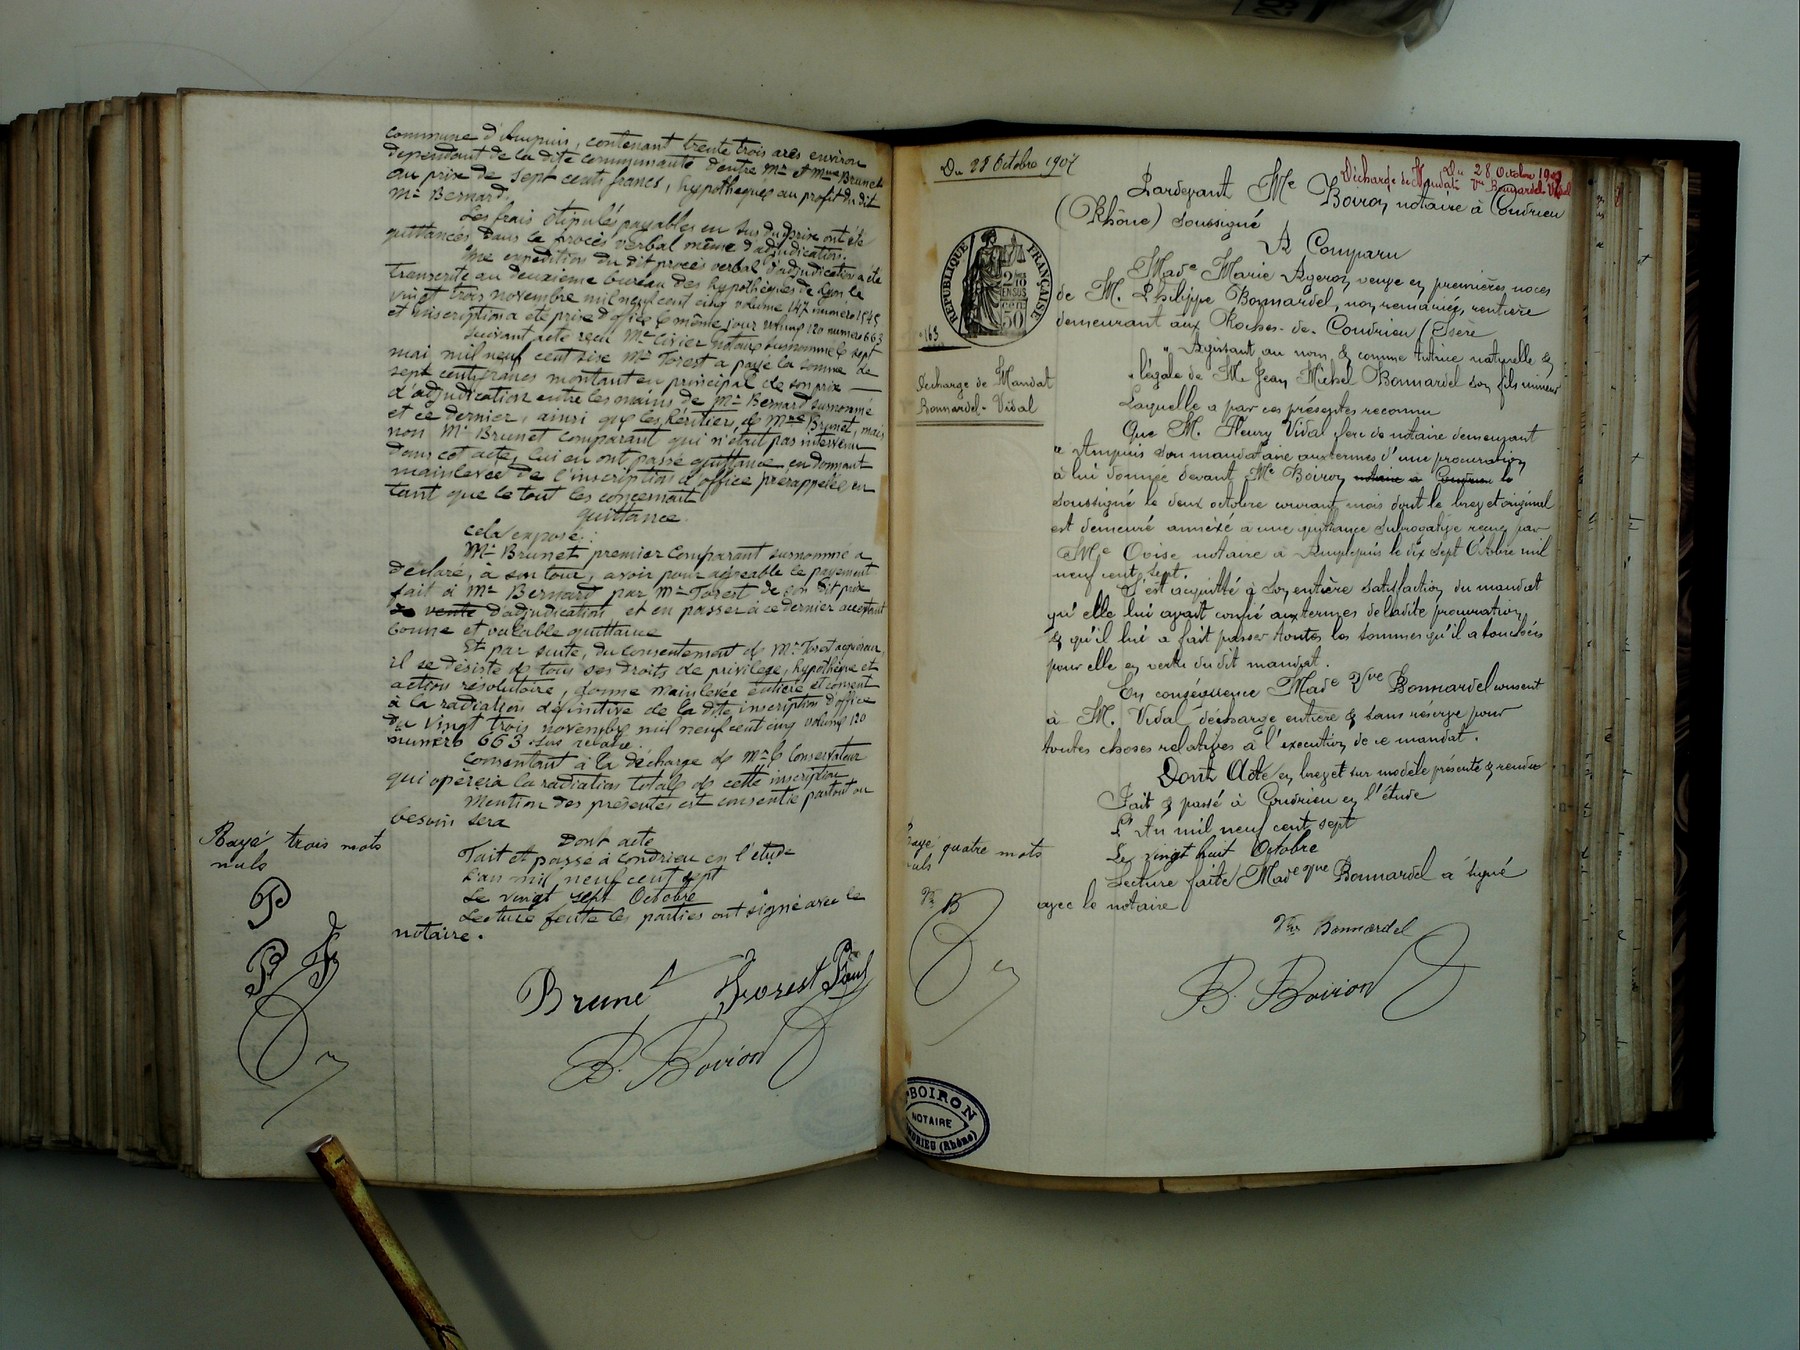 commune d'Ampuis, contenant trente trois ares environ
dépendant de la dite communauté d'entre Mr et Mme Brunet
au prix de sept cents francs, hypothéqués au profit du dit
Mr Bernard.
Les frais stipulés payables en sus du prix ont été
quittancés dans le procès verbal même d'adjudication.
Une expédition du dit procès verbal d'adjudication a été
transcrite au deuxième bureau des hypothèques de Lyon le
vingt trois novembre mil neuf cent cinq volume 147 numéro 1545
et inscription a été prise d'office le même jour volume 120 numéro 663
Suivant acte reçu Mr Civier notaire susnommé le sept
mai mil neuf cent sise Mr Forest a payé la somme de
sept cents francs montant en principal de son prix
d'adjudication entre les mains de Mr Bernard susnommé
et ce dernier, ainsi que les héritiers de Mme Brunet, mais
non Mr Brunet comparant qui n'était pas intervenu
dans cet acte, lui en ont passé quittance en donnant
mainlevée de l'inscription d'office prérappelée en
tant que le tout les concernait
quittance.
cela exposé :
Mr Brunet premier comparant surnommé a
déclaré, à son tour, avoir pour agréable le payement
fait à Mr Bernard par Mr Forest de son dit prix
de vente d'adjudication et en passer à ce dernier acceptant
bonne et valable quittance
Et par suite, du consentement de Mr Forest acquéreur,
il se désiste de tous ses droits de privilège, hypothèque et
action résolutoire, donne mainlevée entière et consent
à la radiation définitive de la dite inscription d'office
du vingt trois novembre mil neuf cent cinq volume 120
numéro 663 sus relatée.
Consentant à la décharge de Mr le Conservateur
qui opérera la radiation totale de cette inscription
Mention des présentes est consentie partout ou
besoin sera
Dont acte
Fait et passé à Condrieu en l'étude
L'an mil neuf cent sept
Le vingt sept Octobre
Lecture faite les parties ont signé avec le
notaire.
Rayé trois mots
nuls
Brunet Forest Paul
B. Boiron
Du 28 Octobre 1907
Du 28 Octobre 1907
Décharge de Mandat Vve Bonnardel-Vidal
Pardevant Me Boiron notaire à Condrieu
(Rhône) soussigné
A Comparu
REPUBLIQUE FRANÇAISE
50
Décharge de Mandat
Bonnardel-Vidal
Made Marie Ageron veuve en premières noces
de M. Philippe Bonnardel, non remariée, rentière
demeurant aux Roches-de-Condrieu (Isère
" Agissant au nom & comme tutrice naturelle &
" légale de M. Jean Michel Bonnardel son fils mineur
Laquelle a par ces présentes reconnu
Que M. Fleury Vidal clerc de notaire demeurant
à Ampuis son mandataire aux termes d'une procuration
à lui donnée devant Me Boiron notaire à Condrieu
soussigné le deux octobre courant mois dont le brevet original
est demeuré annéxé a une quittance subrogative reçue par
Me Ovise notaire à Amplepuis le dix sept Octobre mil
neuf cent sept.
S'est acquitté à son entière satisfaction du mandat
qu'elle lui avait confié aux termes de ladite procuration,
& qu'il lui a fait passer toutes les sommes qu'il a touchées
pour elle en vertu du dit mandat.
En conséquence Made Vve Bonnardel consent
à M. Vidal décharge entière & sans réserve pour
toutes choses relatives à l'execution de ce mandat.
Dont Acte en brevet sur modèle présenté & rendu
Fait & passé à Condrieu en l'étude
L'An mil neuf cent sept
Le vingt huit Octobre
Lecture faite Made Vve Bonnardel a signé
avec le notaire
Rayé quatre mots
nuls
Vve B
Vve Bonnardel
B. Boiron
BOIRON
NOTAIRE
CONDRIEU (Rhône)